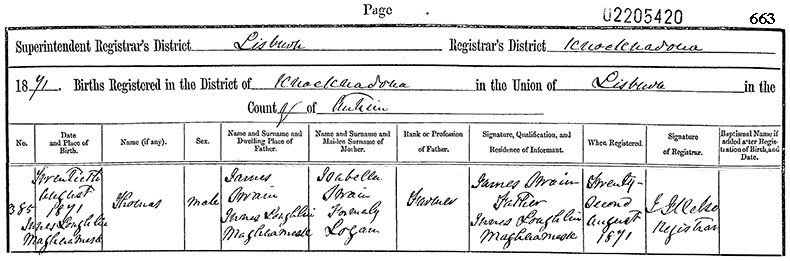 Page
02205420
663
Superintendent Registrar's District Lisburn Registrar's District Knocknadona
1871. Births Registered in the District of Knocknadona in the Union of Lisburn in the
County of Antrim
No. Date and Place of Birth. Name (if any). Sex. Name and Surname and Dwelling Place of Father. Name and Surname and Maiden Surname of Mother. Rank or Profession of Father. Signature, Qualification, and Residence of Informant. When Registered. Signature of Registrar. Baptismal Name if added after Registration of Birth, and Date.
385 Twentieth August 1871 Innes Loughlin Maghramesk
Thomas
male
James Brain Innes Loughlin Maghramesk
Isabella Brain Formerly Logan
Farmer
James Brain Father Innes Loughlin Maghramesk
Twenty-Second August 1871
Registrar